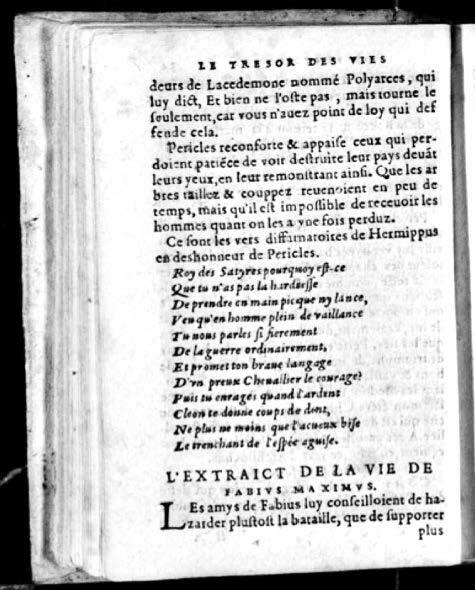 LE TRESOR DES VIES
deurs de Lacedemone nommé Polyarces, qui
luy dict, Et bien ne l'oste pas, mais tourne le
seulement, car vous n'auez point de loy qui def
fende cela.
Pericles reconforte & appaise ceux qui per-
doient patiẽce de voir destruite leur pays deuãt
leurs yeux, en leur remonstrant ainsi. Que les ar
bres taillez & couppez reuenoient en peu de
temps, mais qu'il est impossible de recouoir les
hommes quant on les a vne fois perduz.
Ce sont les vers diffamatoires de Hermippus
en deshonneur de Pericles.
Roy des Satyres pourquoy est-ce
Que tu n'as pas la hardiesse
De prendre en main picque ny lance,
Veu qu'en homme plein de vaillance
Tu nous parles si fierement
De la guerre ordinairement,
Et promet ton braue langage
D'vn preux Cheuallier le courage?
Puis tu enrages quand l'ardent
Cleon te donne coups de dent,
Ne plus ne moins que l'acueux bise
Le trenchant de l'espée aguise.
L'EXTRAICT DE LA VIE DE
FABIVS MAXIMVS.
LEs amys de Fabius luy conseilloient de ha-
zarder plustost la bataille, que de supporter
plus